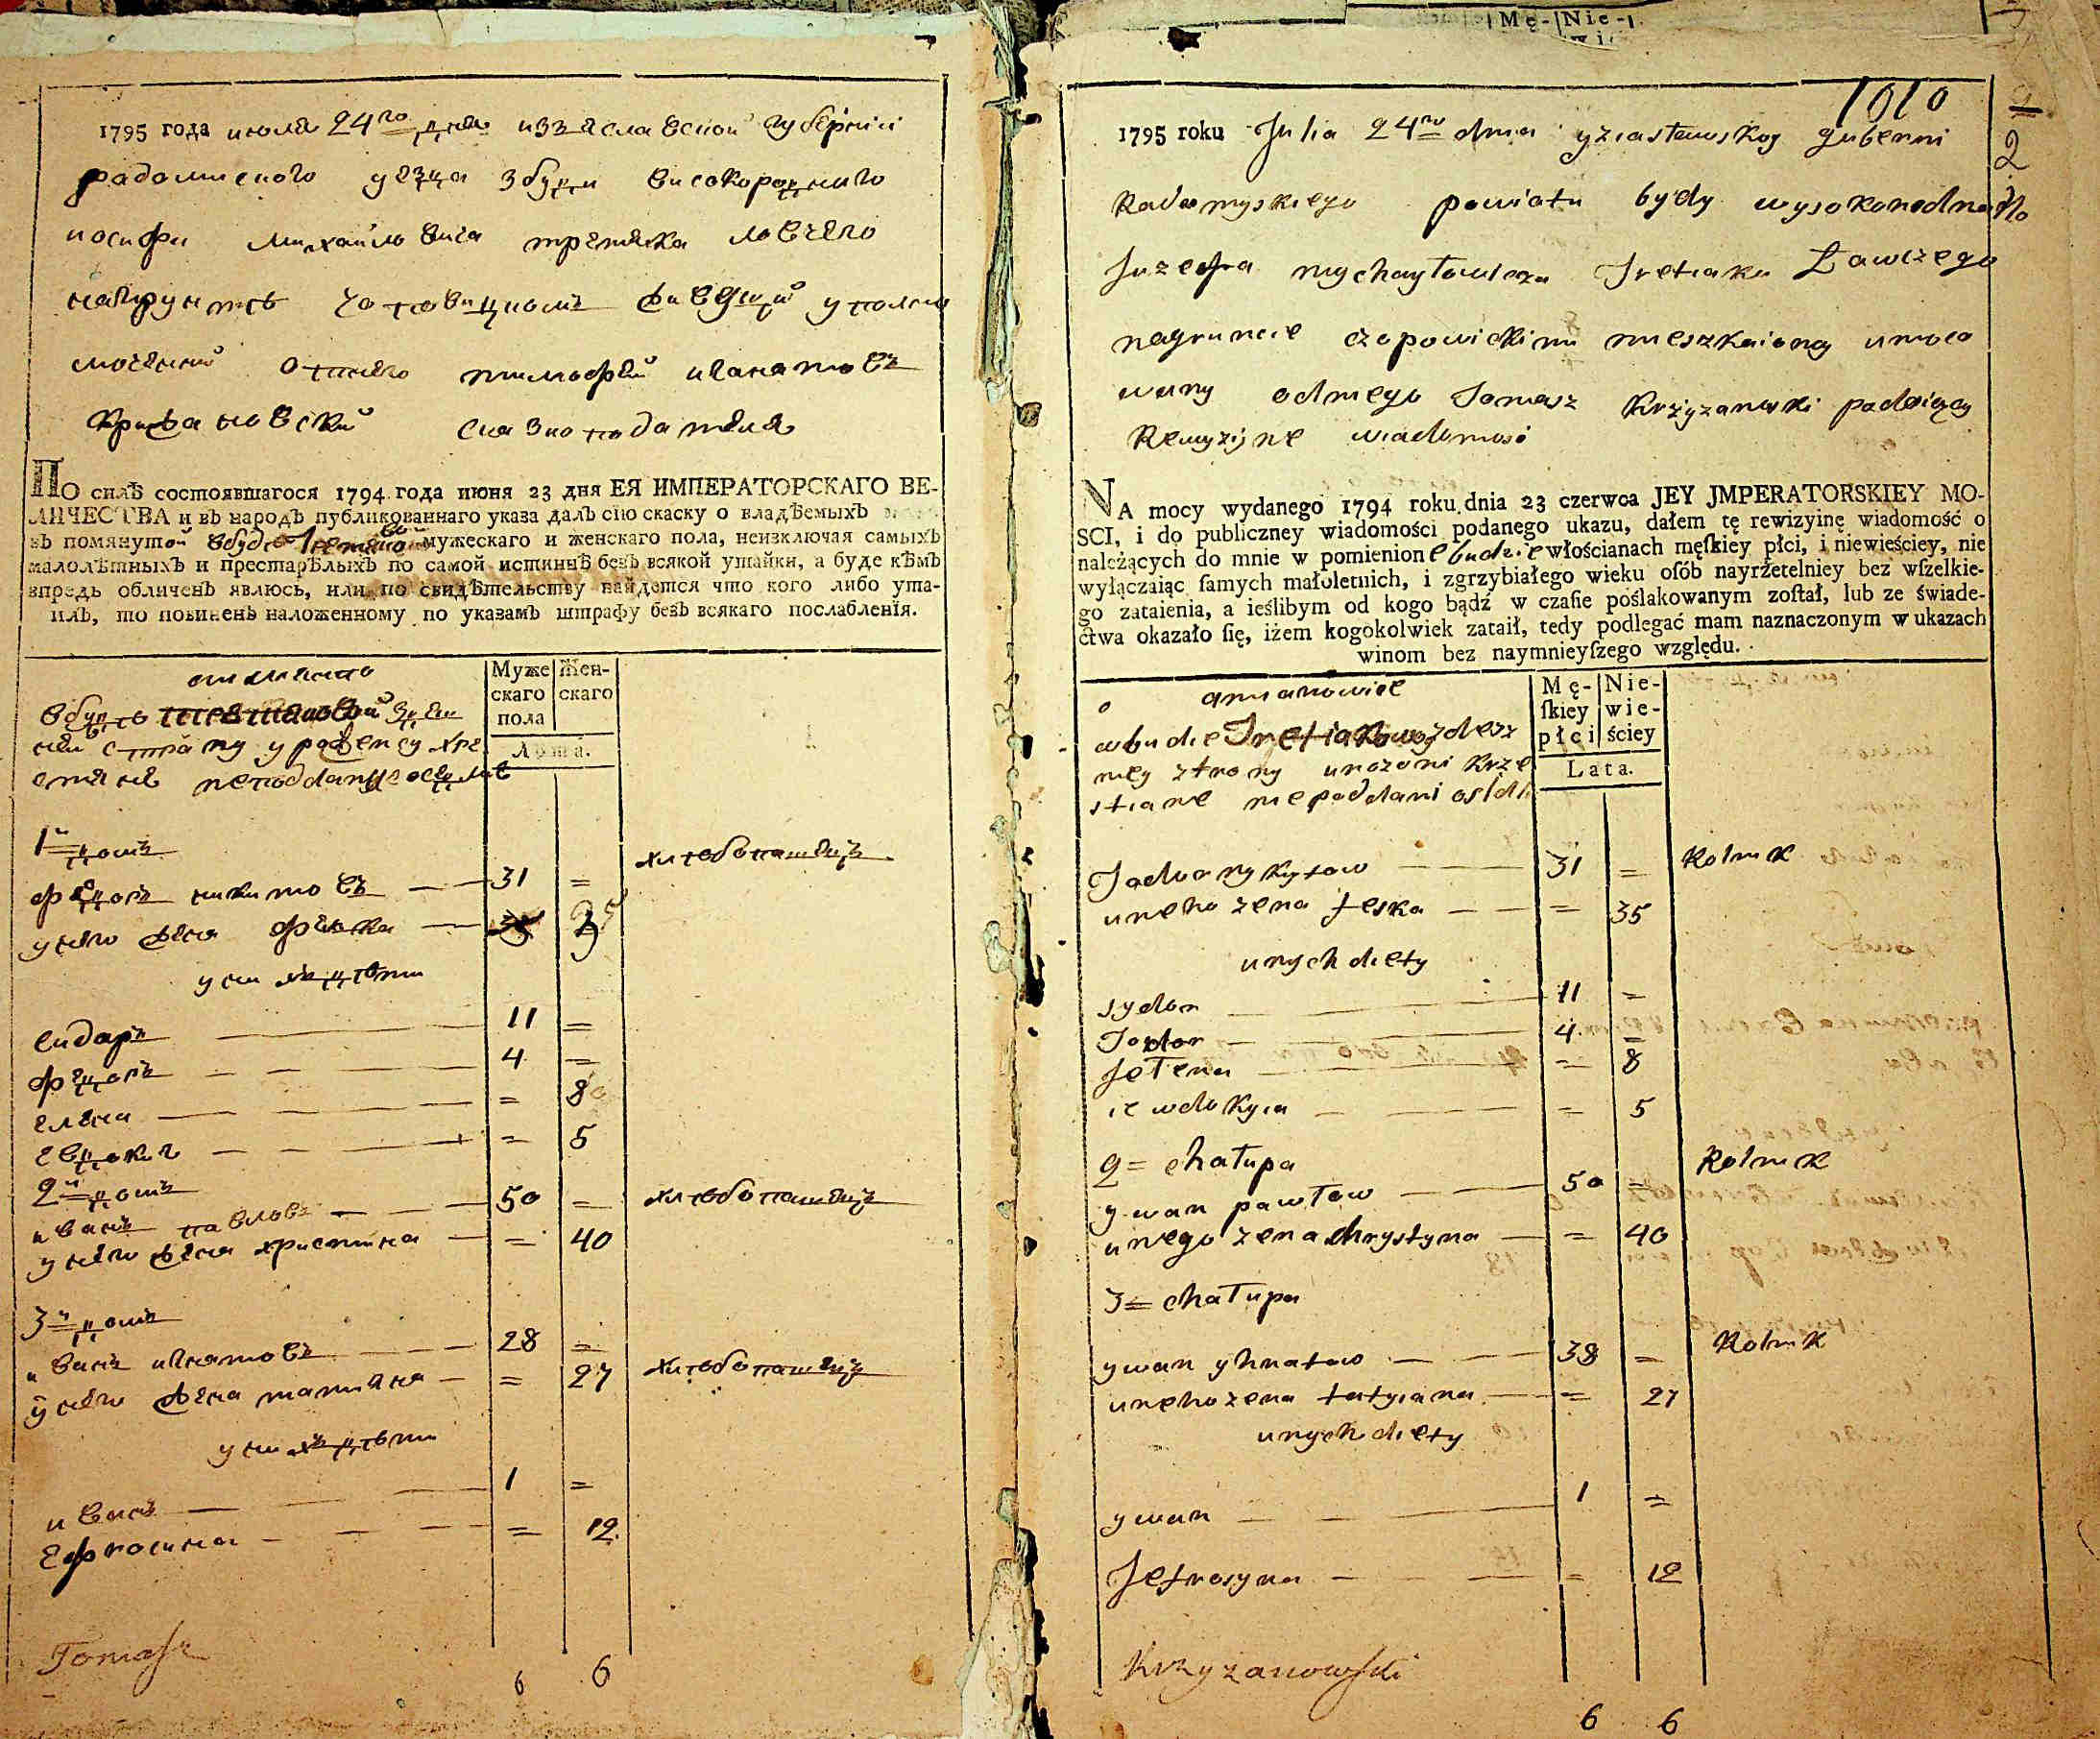 1795 года июля 24го дня изяславской губернии
радомиского уезда з буди високородного
иосифа михайловича третяка ловчего
на грунте чоповицкомъ живущий уполно
моченний от него тимофей игнатовъ
крижановский сказкоподателя
По силѣ состоявшагося 1794 года июня 23 дня ЕЯ ИМПЕРАТОРСКАГО ВЕ-
ЛИЧЕСТВА и въ народъ публикованнаго указа далъ сію скаску о владѣемыхъ
въ помянутой в буде мужескаго и женскаго пола, неизключая самыхъ
малолѣтныхъ и престарѣлыхъ по самой истиннѣ безъ всякой утайки, а буде кѣмъ
впредь обличенъ явлюсь, или по свидѣтельству найдется что кого либо ута-
илъ, то повиненъ наложенному по указамъ штрафу безъ всякаго послабленія.
а имянно
Муже
скаго
пола
Жен-
скаго
Лѣта.
в буде
хре
стяне
1й домъ
федоръ никитовъ 31 = хлебопашецъ
у него жена феска 35
у них дети
сидоръ 11 =
федоръ 4 =
елена = 8
евдокия = 5
2й домъ
иванъ павловъ 50 = хлебопашецъ
у него жена христина = 40
3й домъ
иванъ игнатовъ 28 =
у него жена татияна = 27 хлебопашецъ
у них дети
иванъ 1 =
ефросина = 12
Tomasz
6 6
Mę- Nie-
1010
2
1795 roku Julia 24go dnia yziasławskoy gubernii
Radomyskiego powiatu budy wysokorodnoho
Juzefa mychayłowicza Tretiaka Łowczego
na gruncie czopowickim mieszkaiący umoco
wany od niego Tomasz Krzyżanowski podaiący
Rewizijne wiadomosc
NA mocy wydanego 1794 roku dnia 23 czerwca JEY JMPERATORSKIEY MO-
SCI, i do publiczney wiadomości podanego ukazu, dałem tę rewizyinę wiadomość o
należących do mnie w pomienione budzie włościanach męſkiey płci, i niewieściey, nie
wyłączaiąc ſamych małoletnich, i zgrzybiałego wieku oſób nayrzetelniey bez wſzelkie-
go zataienia, a ieślibym od kogo bądź w czaſie poślakowanym zoſtał, lub ze świade-
ctwa okazało ſię, iżem kogokolwiek zataił, tedy podlegać mam naznaczonym w ukazach
winom bez naymnieyſzego względu.
a mianowicie
Mę-
ſkiey
płci
Nie-
wie-
ściey
Lata.
w budie Tretiakowoy zdesz
niey strony urozoni krze
stiane niepoddani osidli
Jadwor nykytow 31 = Rolnik
u neho zena feska = 35
u nych diety
sydor 11 =
Jodor 4 =
Jełena = 8
iewdokyia = 5
2= chałupa
ywan pawłow 50 = Rolnik
u nego zena chrystyna = 40
3= chałupa
ywan yhnatow 38 = Rolnik
u neho zena tatyiana = 27
u nych diety
ywan 1 =
Jefrosyna = 12
Krzyzanowski
6 6